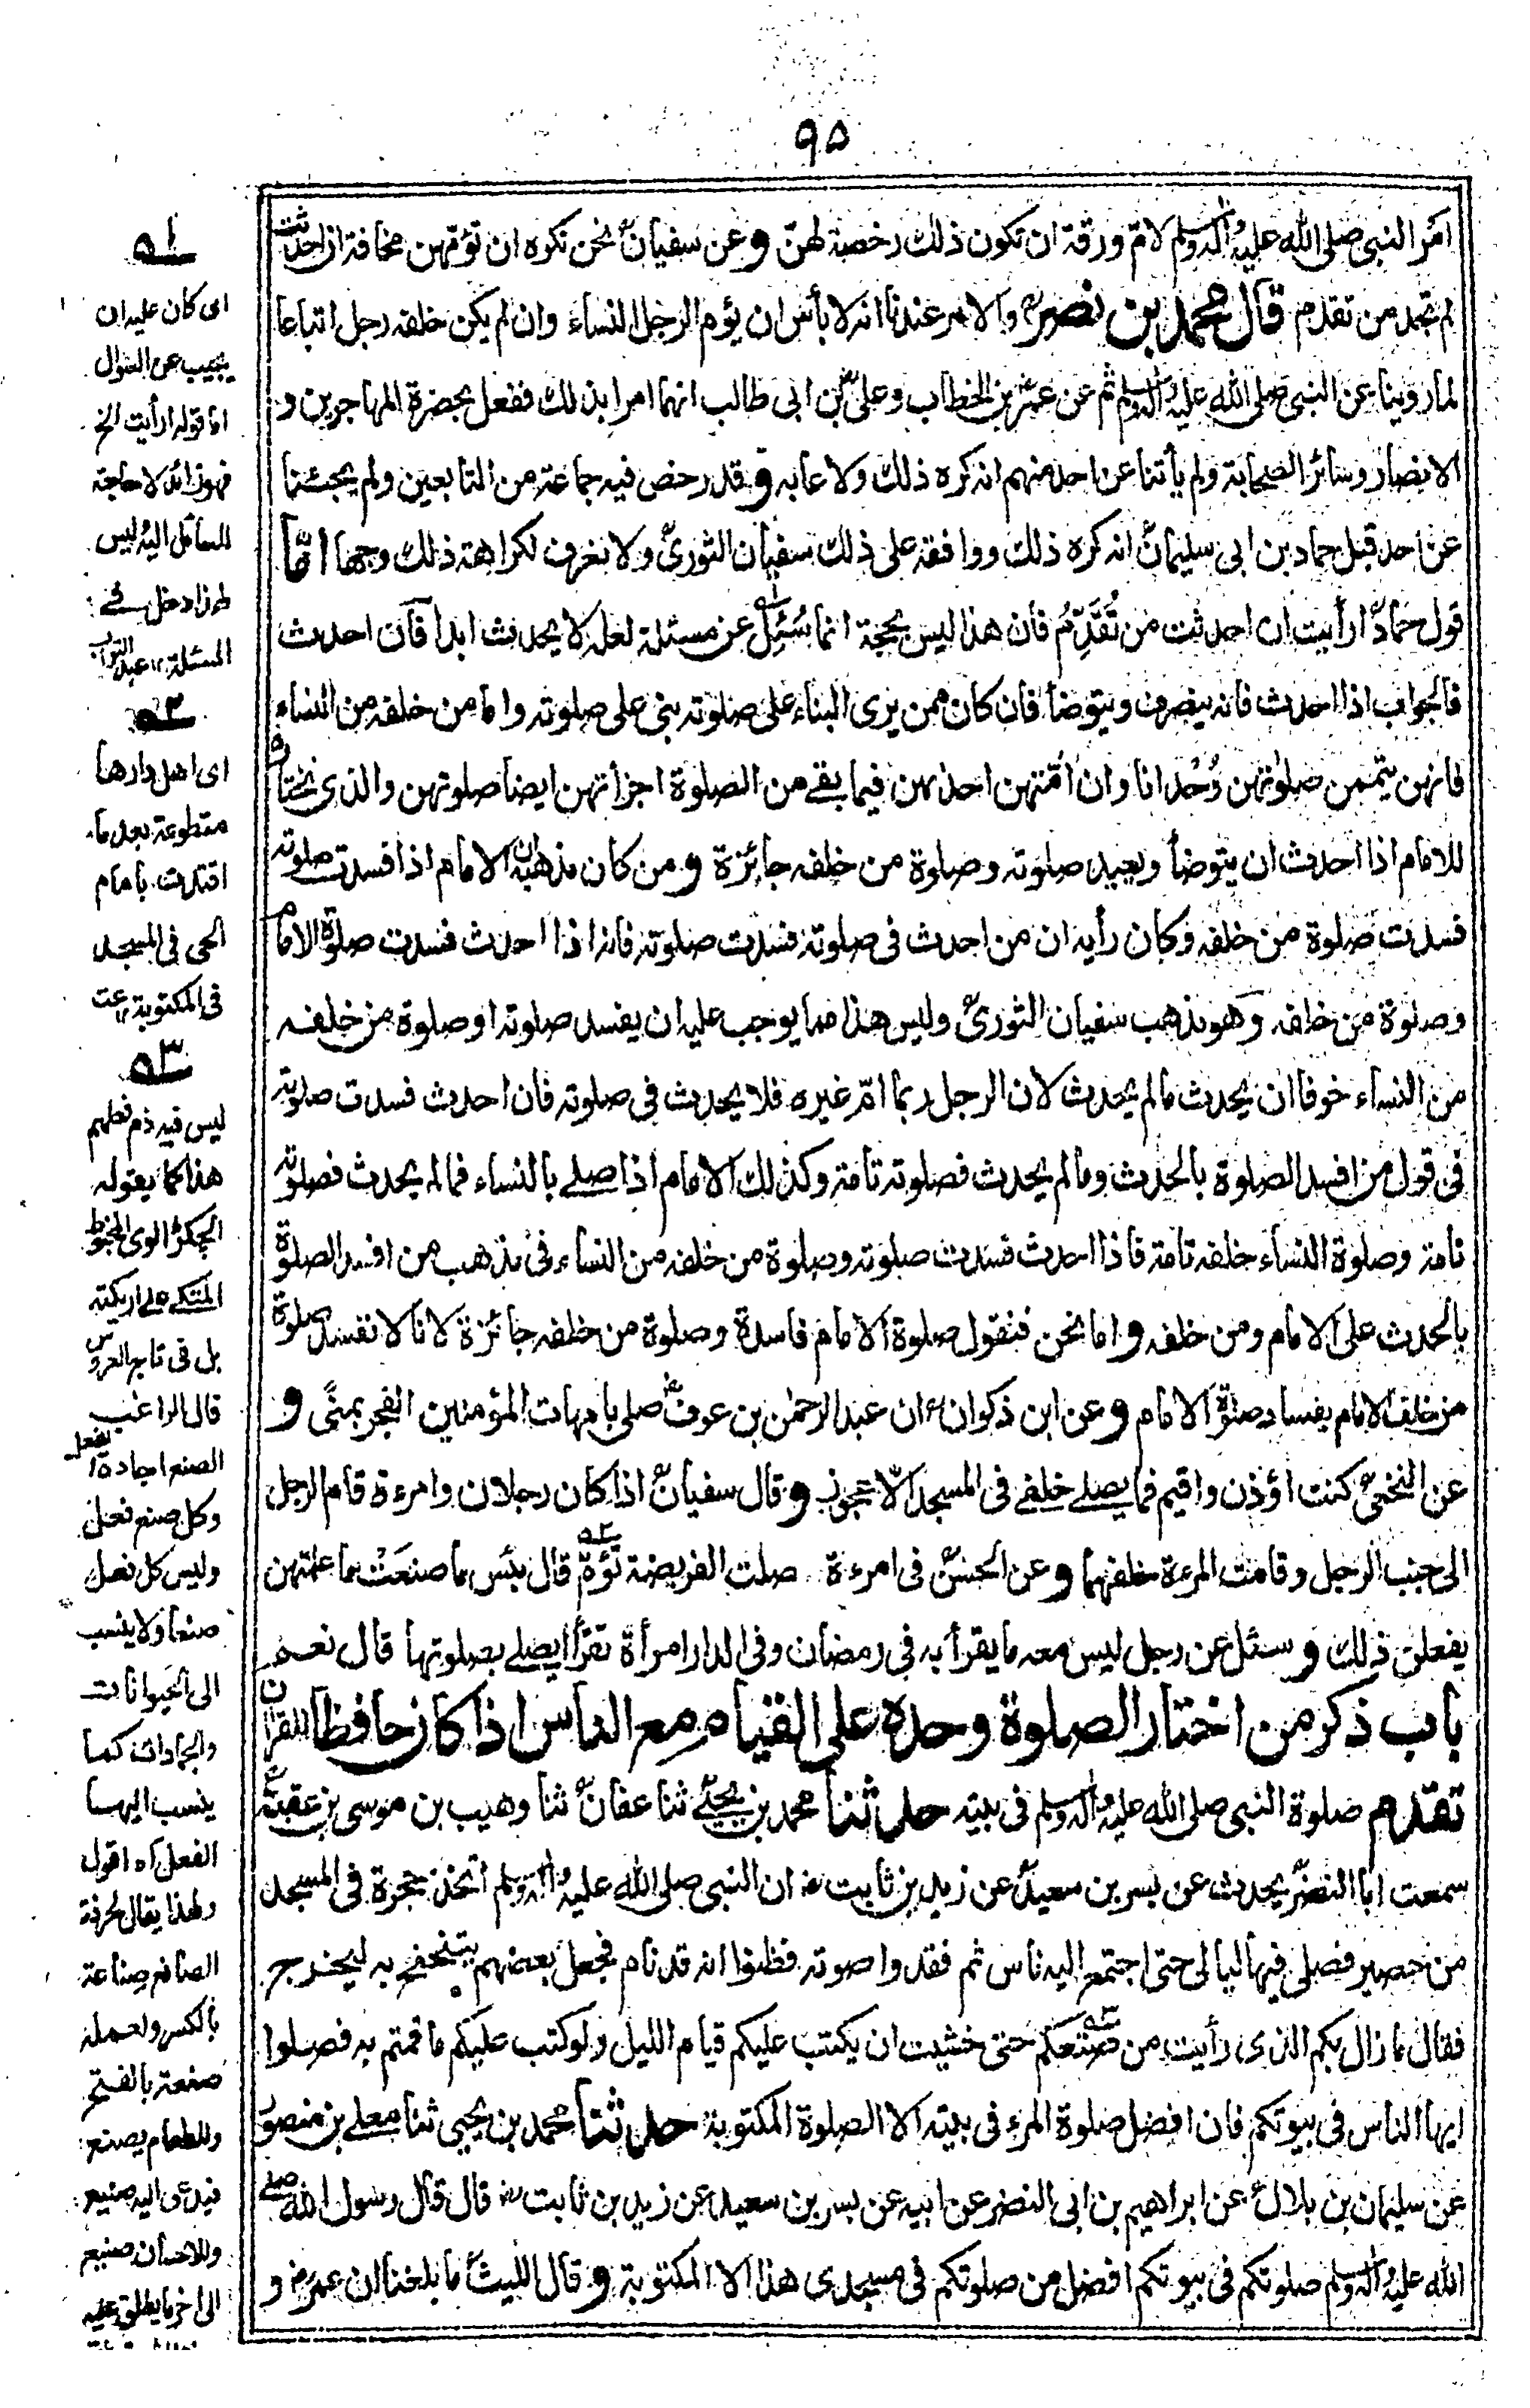 ٩٥
امر النبي صلى الله عليه وآله وسلم لام ورقة ان تكون ذلك رخصة لهن وعن سفيان نحن نكره ان تؤمهن مخافة ان احدثت
لم تجد من تقدم قال محمد بن نصر والامر عندنا انه لا بأس ان يؤم الرجل النساء وان لم يكن خلفه رجل اتباعا
لما روينا عن النبي صلى الله عليه وآله وسلم ثم عن عمر بن الخطاب وعلى بن ابى طالب انهما امرا بذلك ففعل بحضرة المهاجرين و
الانصار وسائر الصحابة ولم يأتنا عن احد منهم انه كره ذلك ولا عابه وقد رخص فيه جماعة من التابعين ولم يجئنا
عن احد قبل حماد بن ابى سليمان انه كره ذلك ووافقه على ذلك سفيان الثورى ولا نعرف لكراهة ذلك وجها اما
قول حماد ارأيت ان احدثت من تُقَدِّمُ فان هذا ليس بحجة انما سُئِل عن مسئلة لعله لا يحدث ابدا فان احدث
فالجواب اذا احدث فانه ينصرف ويتوضأ فان كان ممن يرى البناء على صلوته بنى على صلوته واما من خلفه من النساء
فانهن يتممن صلوتهن وُحْدانا وان امّتهن احدٰهن فيما بقى من الصلوة اجزأتهن ايضا صلوتهن والذى نختار
للامام اذا احدث ان يتوضأ ويعيد صلوته وصلوة من خلفه جائزة ومن كان مذهبه ان الامام اذا فسدت صلوته
فسدت صلوة من خلفه وكان رأيه ان من احدث فى صلوته فسدت صلوته فانه اذا احدث فسدت صلوة الامام
وصلوة من خلفه وهو مذهب سفيان الثورى وليس هذا مما يوجب عليه ان يفسد صلوته او صلوة من خلفه
من النساء خوفا ان يحدث ما لم يحدث لان الرجل ربما امّ غيره فلا يحدث فى صلوته فان احدث فسدت صلوته
فى قول من افسد الصلوة بالحدث وما لم يحدث فصلوته تامة وكذلك الامام اذا صلى بالنساء فما لم يحدث فصلوته
تامة وصلوة النساء خلفه تامة فاذا احدث فسدت صلوته وصلوة من خلفه من النساء فى مذهب من افسد الصلوة
بالحدث على الامام ومن خلفه واما نحن فنقول صلوة الامام فاسدة وصلوة من خلفه جائزة لانا لا نفسد صلوة
من خلف الامام بفساد صلوة الامام وعن ابن ذكوان ان عبد الرحمٰن بن عوف صلى بامهات المؤمنين الفجر بمنًى و
عن النخعى كنت اؤذن واقيم فما يصلى خلفى فى المسجد الا عجوز وقال سفيان اذا كان رجلان وامرءة قام الرجل
الى جنب الرجل وقامت المرءة خلفهما وعن الحسن فى امرءة صلت الفريضة تؤم قال بئس ما صنعَتْ ما علمتهن
يفعلن ذلك وسئل عن رجل ليس معه ما يقرأ به فى رمضان وفى الدار امرأة تقرأ ايصلى بصلوتها قال نعم
باب ذكر من اختار الصلوة وحده على القيام مع الناس اذا كان حافظا للقرآن
تقدم صلوة النبي صلى الله عليه وآله وسلم فى بيته حدثنا محمد بن يحيى ثنا عفان ثنا وهيب بن موسى بن عقبة
سمعت ابا النضر يحدث عن بسر بن سعيد عن زيد بن ثابت ان النبي صلى الله عليه وآله وسلم اتخذ حجرة فى المسجد
من حصير فصلى فيها ليالى حتى اجتمع اليه ناس ثم فقدوا صوته فظنوا انه قد نام فجعل بعضهم يتنحنح به ليخرج
فقال ما زال بكم الذى رأيت من صنعكم حتى خشيت ان يكتب عليكم قيام الليل ولو كتب عليكم ما قمتم به فصلوا
ايها الناس فى بيوتكم فان افضل صلوة المرء فى بيته الا الصلوة المكتوبة حدثنا محمد بن يحيى ثنا معلى بن منصور
عن سليمان بن بلال عن ابراهيم بن ابى النضر عن ابيه عن بسر بن سعيد عن زيد بن ثابت قال قال رسول الله صلى
الله عليه وآله وسلم صلوتكم فى بيوتكم افضل من صلوتكم فى مسجدى هذا الا المكتوبة وقال الليث ما بلغنا ان عمر و
ا
اى كان عليه ان
يجيب عن السؤال
اما قوله ارأيت الخ
فهو زائد لا حاجة
للسائل اليه ليس
له زا دخل فى
المسئلة ١٢ عبد التواب
٢
اى اهل دارها
متطوعة بعد ما
اقتدت بامام
الحى فى المسجد
فى المكتوبة ١٢ عت
٣
ليس فيه ذم فعلهم
هذا كما يقوله
الچكڑالوى المخبوط
المتكى على اريكته
بل فى تاج العروس
قال الراغب
الصنع اجادة الفعل
وكل صنع فعل
وليس كل فعل
صنعا ولا ينسب
الى الحيوانات
والجمادات كما
ينسب اليها
الفعل اه اقول
ولهذا يقال لحرفة
الصانع صناعة
بالكسر ولعمله
صنعة بالفتح
وللطعام يصنع
فيدعى اليه صنيع
وللاحسان صنيع
الى اخر ما يطلق عليه